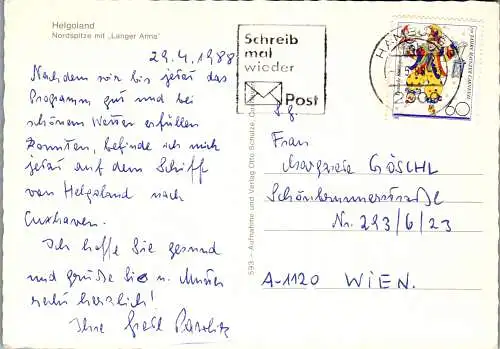 Helgoland
Nordspitze mit „Langer Anna"
29.4.1988
Nachdem wir bis jetzt das
Programm gut und bei
schönem Wetter erfüllen
konnten, befinde ich mich
jetzt auf dem Schiff
von Helgoland nach
Cuxhaven.
Ich hoffe Sie gesund
und grüße Sie u.
recht herzlich!
Ihre Gretl
593 – Aufnahme und Verlag Otto Schulze,
Schreib
mal
wieder
Post
60
Frau
Margarete GÖSCHL
Schönbrunnerstraße
Nr. 293/6/23
A-1120 WIEN.